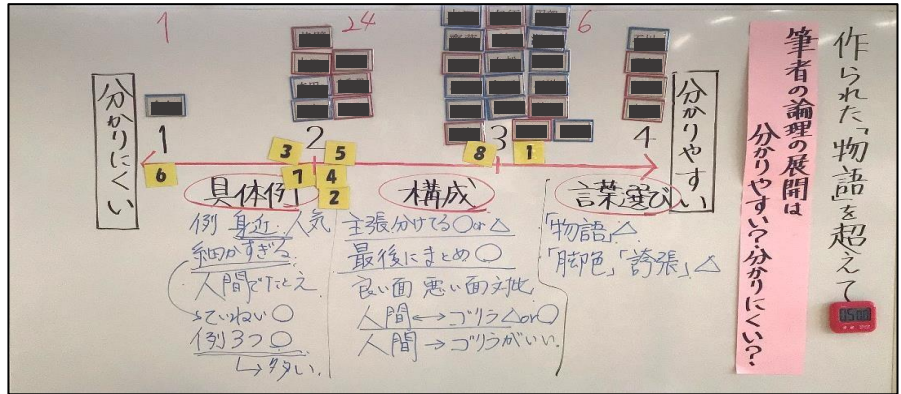 作られた「物語」を超えて
筆者の論理の展開は
分かりやすい?分かりにくい?
1
24
6
分かりにくい
分かりやすい
1
2
3
4
6
3
5
7
4
2
8
1
具体例
例 身近 人気
細かすぎる
人間でたとえ
ていねい○
例3つ○
↳多い.
構成
主張分けてる○or△
最後にまとめ○
良い面 悪い面 対比
人間↔ゴリラ△or○
人間→ゴリラがいい.
言葉選び
「物語」△
「脚色」「誇張」△